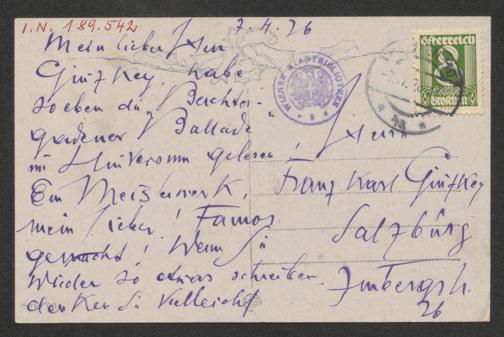 I.N. 189.542
7.4.26
Mein lieber Herr
Ginzkey, habe
soeben die "Berchtes-
gadener Ballade"
im Universum gelesen!
Ein Meisterwerk,
mein lieber! Famos
gemacht! Wenn Sie
wieder so etwas schreiben
denken Sie vielleicht
WIENER STADTBIBLIOTHEK
Österreich
8 Groschen 8
Herrn
Franz Karl Ginzkey
Salzburg
Imbergstr.
26